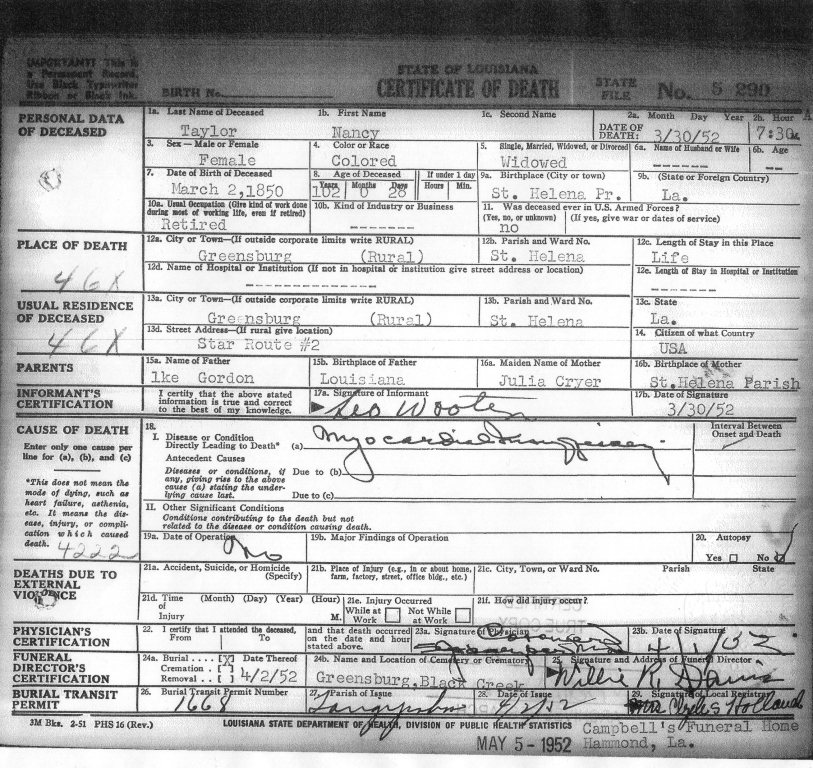 IMPORTANT! This is a Permanent Record. Use Black Typewriter Ribbon or Black Ink.
BIRTH No.
STATE OF LOUISIANA
CERTIFICATE OF DEATH
STATE FILE No. 5 290
PERSONAL DATA OF DECEASED
1a. Last Name of Deceased 1b. First Name 1c. Second Name 2a. Month Day Year 2b. Hour
Taylor Nancy DATE OF DEATH: 3/30/52 7:30
3. Sex—Male or Female 4. Color or Race 5. Single, Married, Widowed, or Divorced 6a. Name of Husband or Wife 6b. Age
Female Colored Widowed ------ --
7. Date of Birth of Deceased 8. Age of Deceased If under 1 day 9a. Birthplace (City or town) 9b. (State or Foreign Country)
Years Months Days Hours Min.
March 2,1850 102 0 28 St. Helena Pr. La.
10a. Usual Occupation (Give kind of work done during most of working life, even if retired) 10b. Kind of Industry or Business 11. Was deceased ever in U.S. Armed Forces?
(Yes, no, or unknown) (If yes, give war or dates of service)
Retired ------- no
PLACE OF DEATH
46X
12a. City or Town—(If outside corporate limits write RURAL) 12b. Parish and Ward No. 12c. Length of Stay in this Place
Greensburg (Rural) St. Helena Life
12d. Name of Hospital or Institution (If not in hospital or institution give street address or location) 12e. Length of Stay in Hospital or Institution
-------------- ------
USUAL RESIDENCE OF DECEASED
46X
13a. City or Town—(If outside corporate limits write RURAL) 13b. Parish and Ward No. 13c. State
Greensburg (Rural) St. Helena La.
13d. Street Address—(If rural give location) 14. Citizen of what Country
Star Route #2 USA
PARENTS
15a. Name of Father 15b. Birthplace of Father 16a. Maiden Name of Mother 16b. Birthplace of Mother
lke Gordon Louisiana Julia Cryer St.Helena Parish
INFORMANT'S CERTIFICATION
I certify that the above stated information is true and correct to the best of my knowledge.
17a. Signature of Informant 17b. Date of Signature
Leo Wooten 3/30/52
CAUSE OF DEATH
Enter only one cause per line for (a), (b), and (c)
*This does not mean the mode of dying, such as heart failure, asthenia, etc. It means the disease, injury, or complication which caused death.
4222
18. Interval Between Onset and Death
I. Disease or Condition Directly Leading to Death* (a) Myocardial
Antecedent Causes
Diseases or conditions, if any, giving rise to the above cause (a) stating the underlying cause last.
Due to (b)
Due to (c)
II. Other Significant Conditions
Conditions contributing to the death but not related to the disease or condition causing death.
19a. Date of Operation 19b. Major Findings of Operation 20. Autopsy
No Yes No
DEATHS DUE TO EXTERNAL VIOLENCE
21a. Accident, Suicide, or Homicide (Specify) 21b. Place of Injury (e.g., in or about home, farm, factory, street, office bldg., etc.) 21c. City, Town, or Ward No. Parish State
21d. Time of Injury (Month) (Day) (Year) (Hour) M. 21e. Injury Occurred While at Work Not While at Work 21f. How did injury occur?
TRUE COPY
PHYSICIAN'S CERTIFICATION
22. I certify that I attended the deceased, From To and that death occurred on the date and hour stated above.
23a. Signature of Physician 23b. Date of Signature
4/1/52
FUNERAL DIRECTOR'S CERTIFICATION
24a. Burial .... [X] Date Thereof 24b. Name and Location of Cemetery or Crematory 25. Signature and Address of Funeral Director
Cremation . [ ]
Removal .. [ ] 4/2/52 Greensburg,Black Creek Willie K. Davis
BURIAL TRANSIT PERMIT
26. Burial Transit Permit Number 27. Parish of Issue 28. Date of Issue 29. Signature of Local Registrar
1668 Tangipahoa 4/2/52 Mrs Clydes Holland
3M Bks. 2-51 PHS 16 (Rev.) LOUISIANA STATE DEPARTMENT OF HEALTH, DIVISION OF PUBLIC HEALTH STATISTICS
Campbell's Funeral Home
MAY 5 - 1952 Hammond, La.